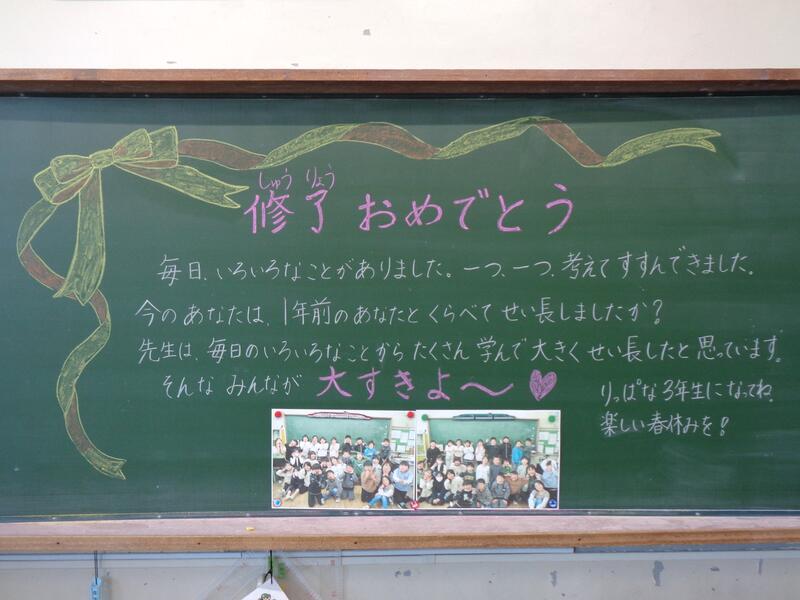 しゅう りょう
修了 おめでとう
毎日、いろいろなことがありました。一つ、一つ、考えてすすんできました。
今のあなたは、1年前のあなたとくらべてせい長しましたか？
先生は、毎日のいろいろなことからたくさん学んで大きくせい長したと思っています。
そんなみんなが 大すきよ～♡
りっぱな3年生になってね。
楽しい春休みを!